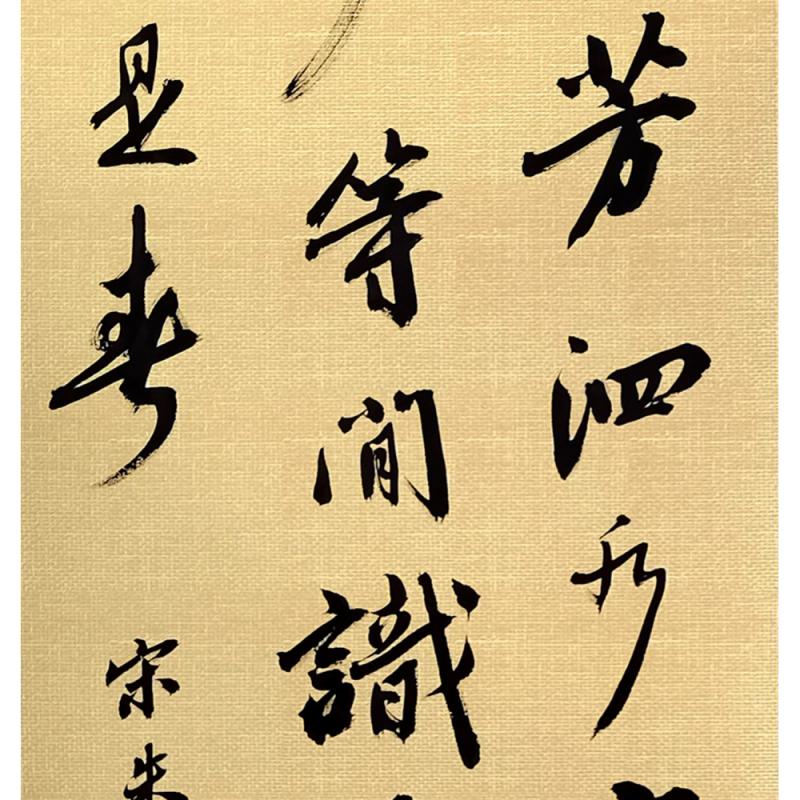 芳泗水
等閒識
是春
宋朱